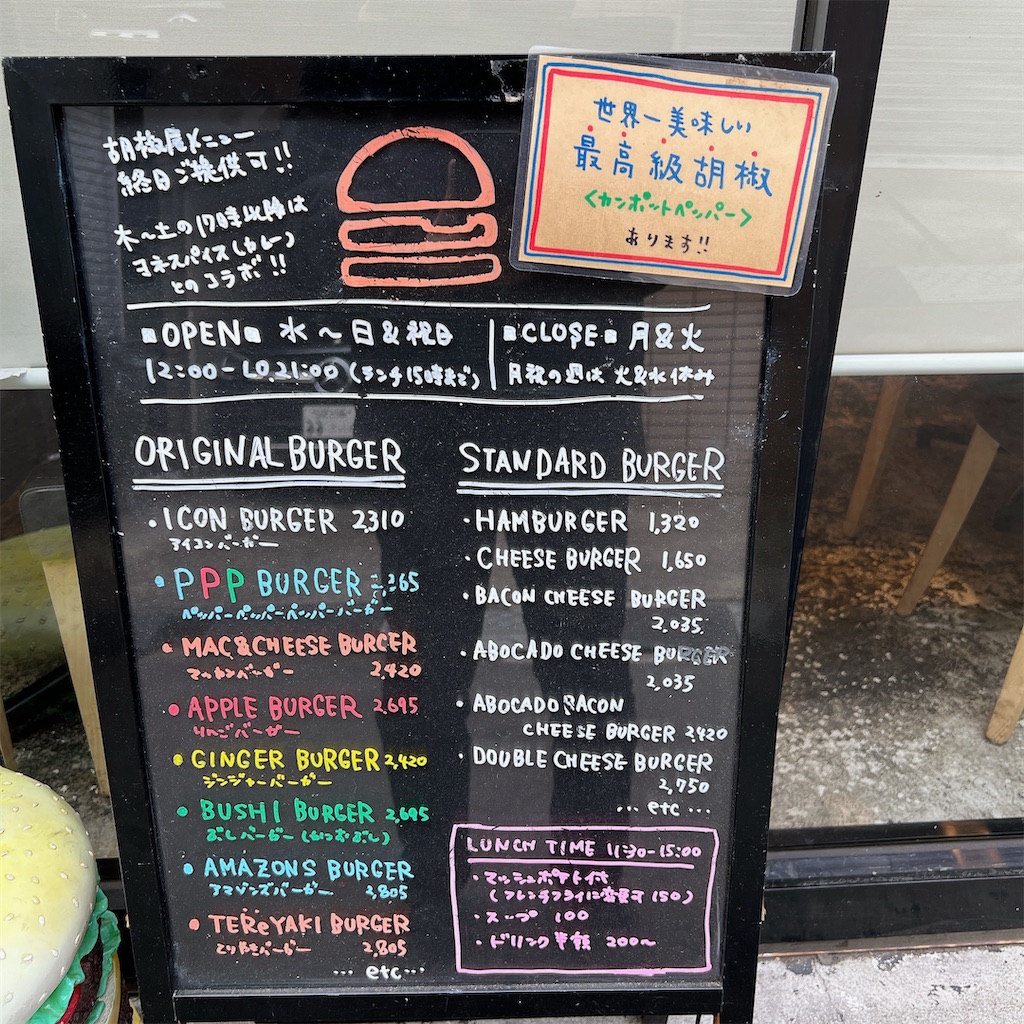 胡椒屋メニュー
終日ご提供可!!
木〜土の17時以降は
ヨネスパイス(カレー)
とのコラボ!!
世界一美味しい
最高級胡椒
<カンポットペッパー>
あります!!
■OPEN■ 水〜日&祝日
12:00-LO.21:00 (ランチ15時まで)
■CLOSE■ 月&火
月祝の週は 火&水休み
ORIGINAL BURGER
・ICON BURGER 2,310
アイコンバーガー
・PPP BURGER
ペッパーペッパーペッパーバーガー
・MAC&CHEESE BURGER
マッケンバーガー 2,420
・APPLE BURGER 2,695
りんごバーガー
・GINGER BURGER 2,420
ジンジャーバーガー
・BUSHI BURGER 2,695
ぶしバーガー (かつおぶし)
・AMAZONS BURGER
アマゾンズバーガー 2,805
・TEReYAKI BURGER
てりやきバーガー 2,805
… etc …
STANDARD BURGER
・HAMBURGER 1,320
・CHEESE BURGER 1,650
・BACON CHEESE BURGER
2,035
・ABOCADO CHEESE BURGER
2,035
・ABOCADO BACON
CHEESE BURGER 2,420
・DOUBLE CHEESE BURGER
2,750
… etc …
LUNCH TIME 11:30-15:00
・マッシュポテト付
(フレンチフライに変更可 150)
・スープ 100
・ドリンク単品 200〜